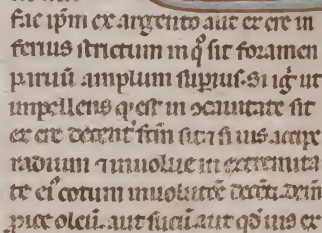 fac ip̄m ex argento aut ex ere in
ferius strictum in q̊ sit foramen
paruū amplum suꝑius. Si ig̊ ut
inpellens q̄ est in ↄcauitate sit
ex ere decent᷑ sc̄m sit ⁊ si uis accipe
radium ⁊ inuolue in extremita
te ei᷒ cotum inuolutōe decēti. dein̄
oleū. aut succū aut qd̓ uis ex